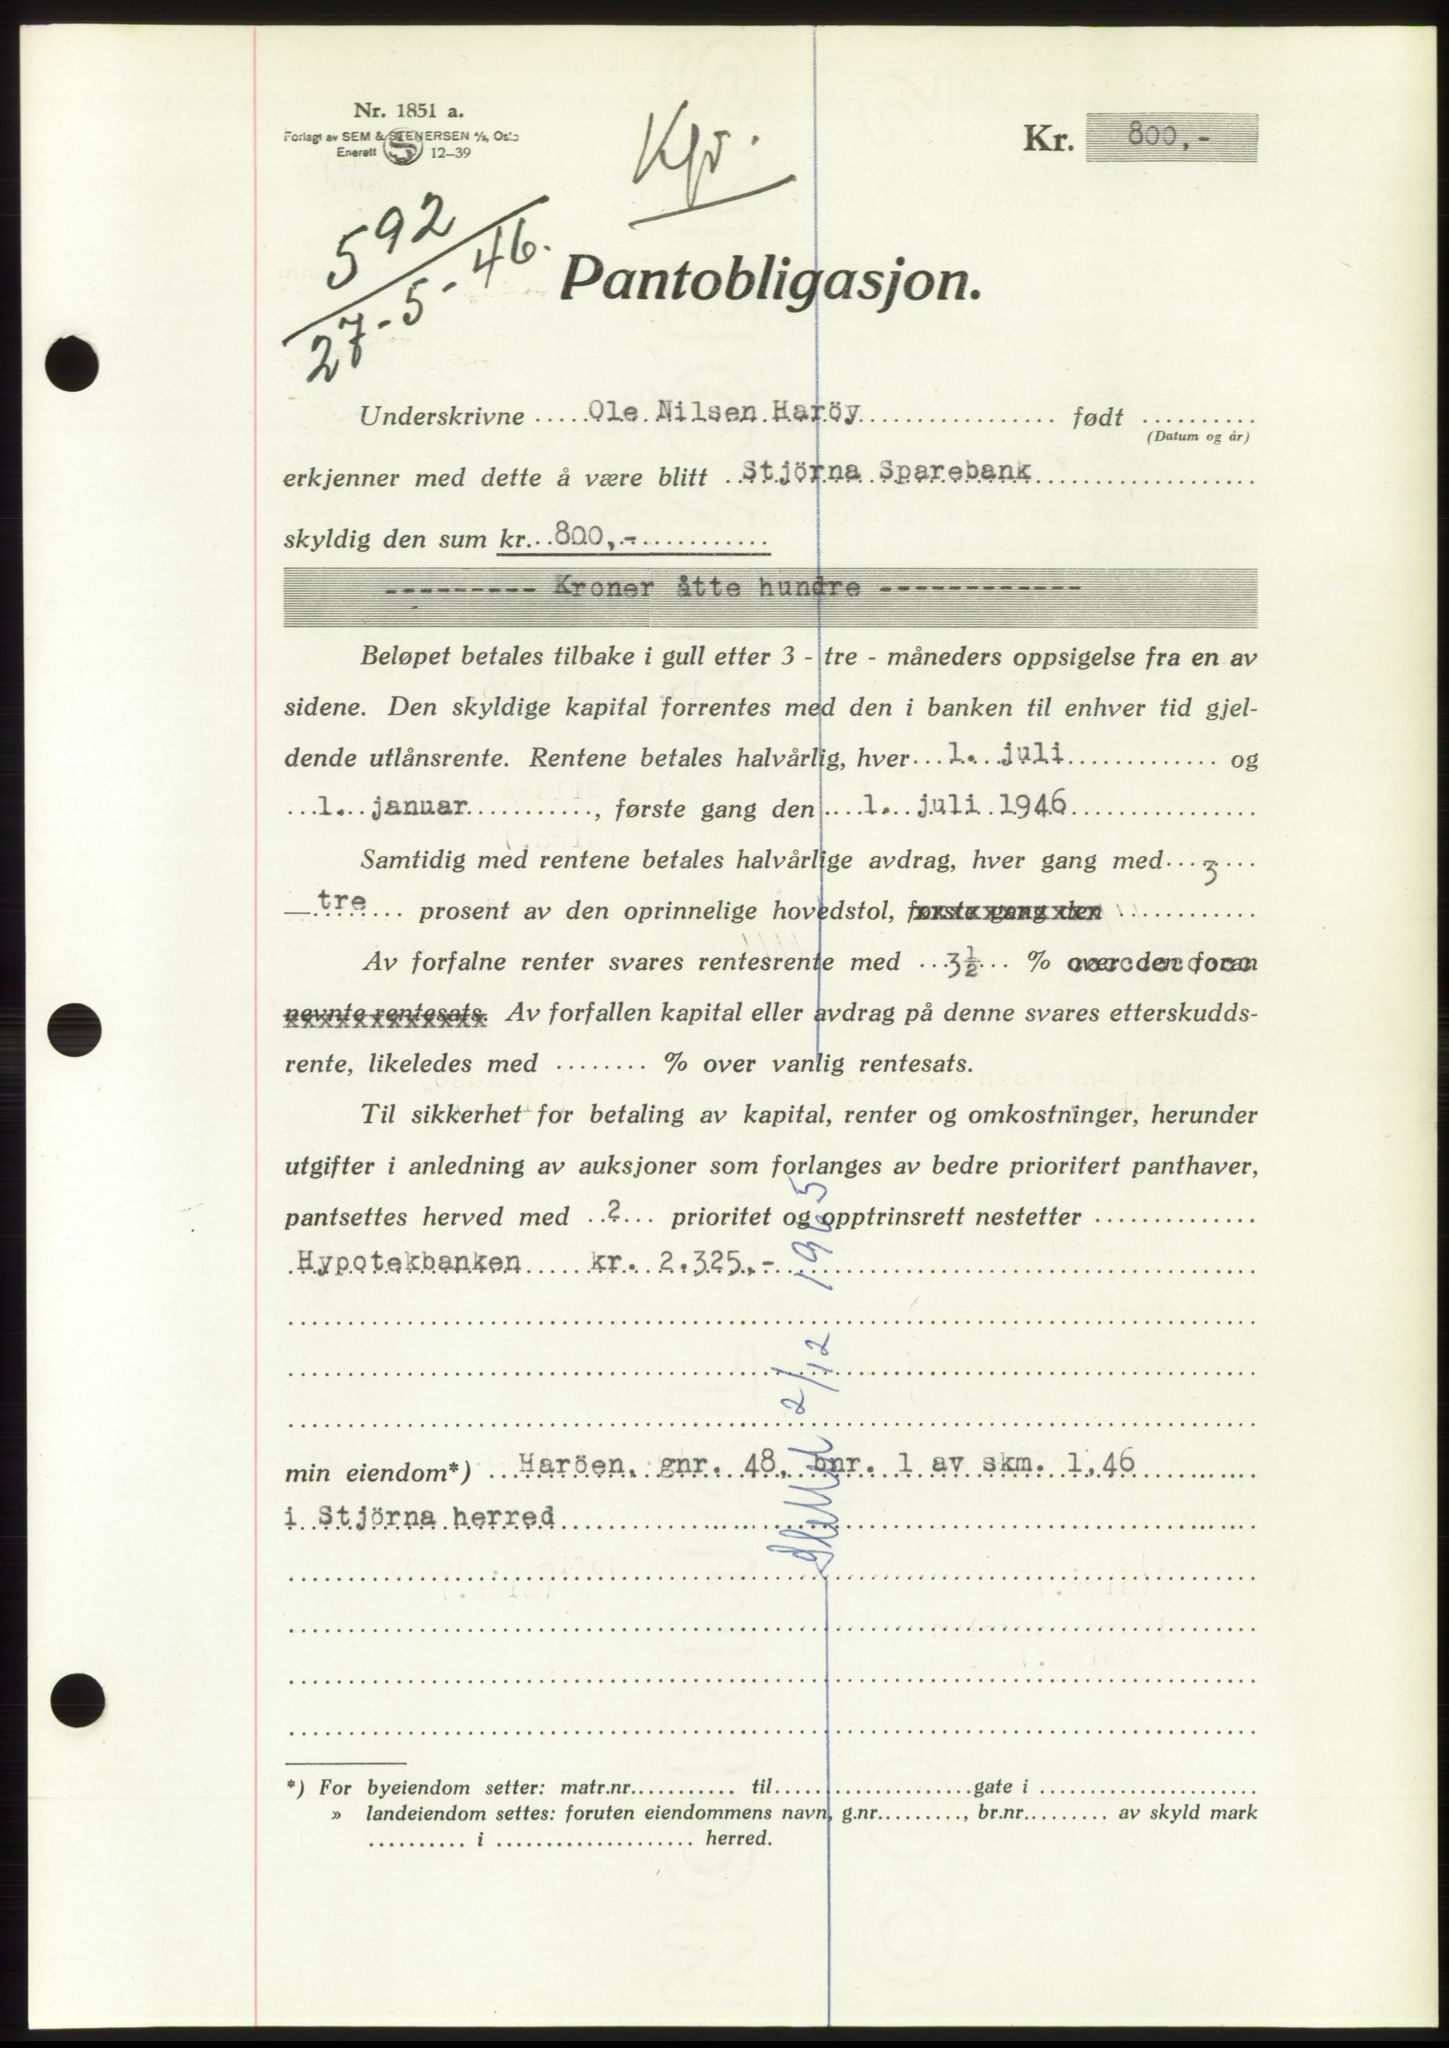 Nr. 1851 a.
Forlagt av SEM & STENERSEN A/S, Oslo
Enerett S 12-39
Kr. 800,-
592
27-5-46.
Pantobligasjon.
Underskrivne Ole Nilsen Haröy født
(Datum og år)
erkjenner med dette å være blitt Stjörna Sparebank
skyldig den sum kr. 800,-
--------- Kroner åtte hundre ------------
Beløpet betales tilbake i gull etter 3 - tre - måneders oppsigelse fra en av
sidene. Den skyldige kapital forrentes med den i banken til enhver tid gjel-
dende utlånsrente. Rentene betales halvårlig, hver 1. juli og
1. januar, første gang den 1. juli 1946
Samtidig med rentene betales halvårlige avdrag, hver gang med 3
tre prosent av den oprinnelige hovedstol, første gang den
Av forfalne renter svares rentesrente med 3½ % over den foran
nevnte rentesats. Av forfallen kapital eller avdrag på denne svares etterskudds-
rente, likeledes med ........ % over vanlig rentesats.
Til sikkerhet for betaling av kapital, renter og omkostninger, herunder
utgifter i anledning av auksjoner som forlanges av bedre prioritert panthaver,
pantsettes herved med 2 prioritet og opptrinsrett nestetter
Hypotekbanken kr. 2.325,-
Slettet 2/12 1965
min eiendom*) Haröen, gnr. 48, bnr. 1 av skm. 1,46
i Stjörna herred
*) For byeiendom setter: matr.nr........... til....................gate i ......................
» landeiendom settes: foruten eiendommens navn, g.nr........., br.nr......... av skyld mark
.......... i .................... herred.